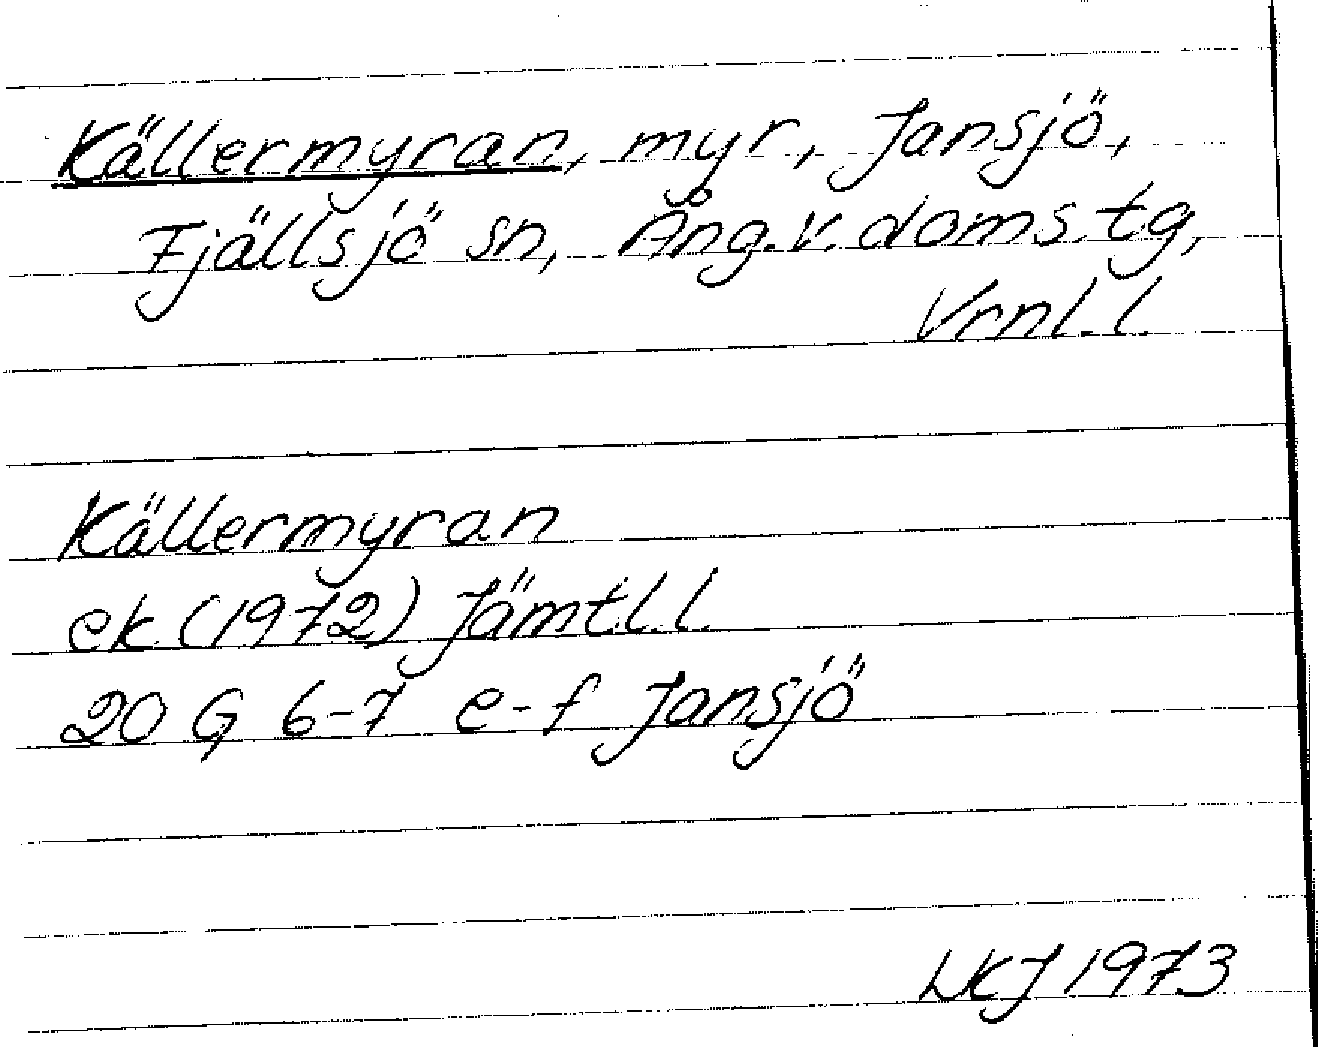 Källermyran, myr, Jansjö,
Fjällsjö sn, Ång.v.doms.tg,
Vrnl.l.
Källermyran
ek (1972) Jämtl.l.
20 G 6-7 e-f Jansjö
LKJ 1973